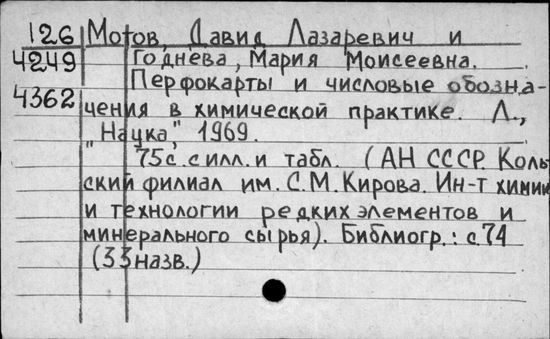 126 Мотов, Давид Лазаревич и
4249 Годнева, Мария Моисеевна.
Перфокарты и числовые обозна-
4362 чения в химической практике. Л.,
"Наука", 1969.
75с. с илл. и табл. (АН СССР. Коль
ский филиал им. С.М. Кирова. Ин-т химии
и технологии редких элементов и
минерального сырья). Библиогр.: с. 74
(33 назв.)